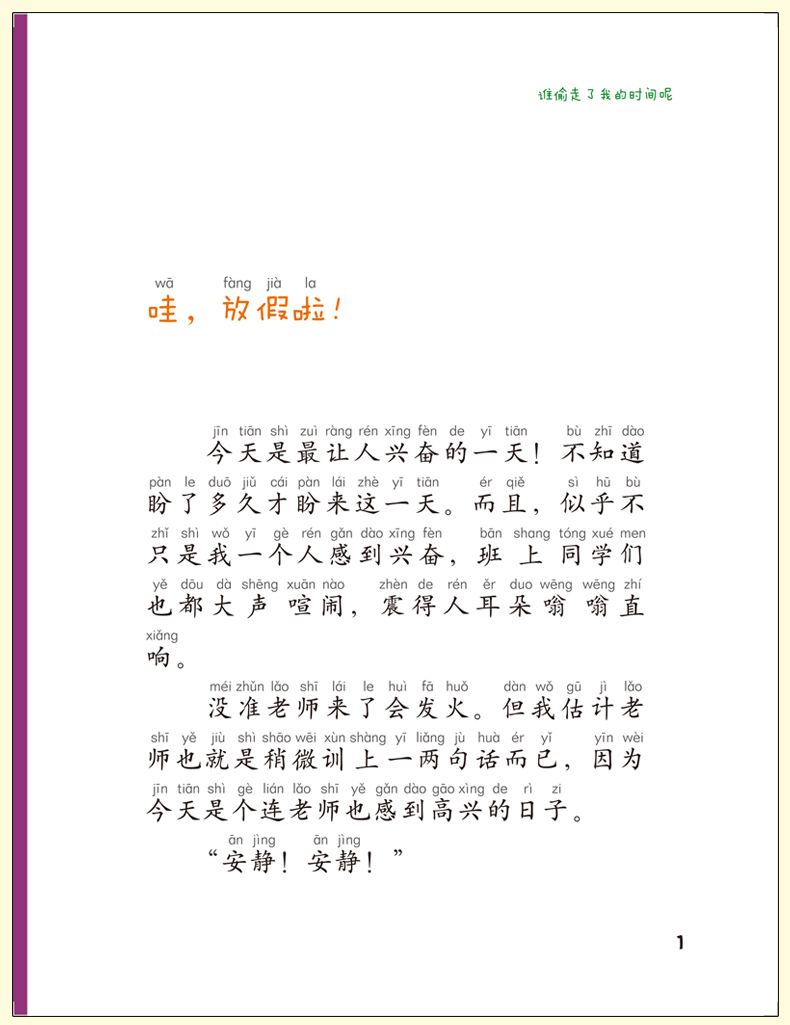 谁偷走了我的时间呢
wā fàng jià la
哇，放假啦！
jīn tiān shì zuì ràng rén xīng fèn de yī tiān bù zhī dào
今天是最让人兴奋的一天！不知道
pàn le duō jiǔ cái pàn lái zhè yī tiān ér qiě sì hū bù
盼了多久才盼来这一天。而且，似乎不
zhǐ shì wǒ yī gè rén gǎn dào xīng fèn bān shang tóng xué men
只是我一个人感到兴奋，班上同学们
yě dōu dà shēng xuān nào zhèn de rén ěr duo wēng wēng zhí
也都大声喧闹，震得人耳朵嗡嗡直
xiǎng
响。
méi zhǔn lǎo shī lái le huì fā huǒ dàn wǒ gū jì lǎo
没准老师来了会发火。但我估计老
shī yě jiù shì shāo wēi xùn shàng yī liǎng jù huà ér yǐ yīn wèi
师也就是稍微训上一两句话而已，因为
jīn tiān shì gè lián lǎo shī yě gǎn dào gāo xìng de rì zi
今天是个连老师也感到高兴的日子。
ān jìng ān jìng
“安静！安静！”
1